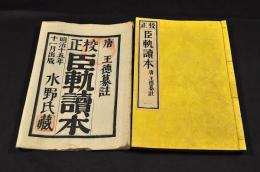 唐 王德纂註
校正
臣軌讀本
明治十五年
十一月出版
水野氏藏
校正
臣軌讀本 唐 王德纂註